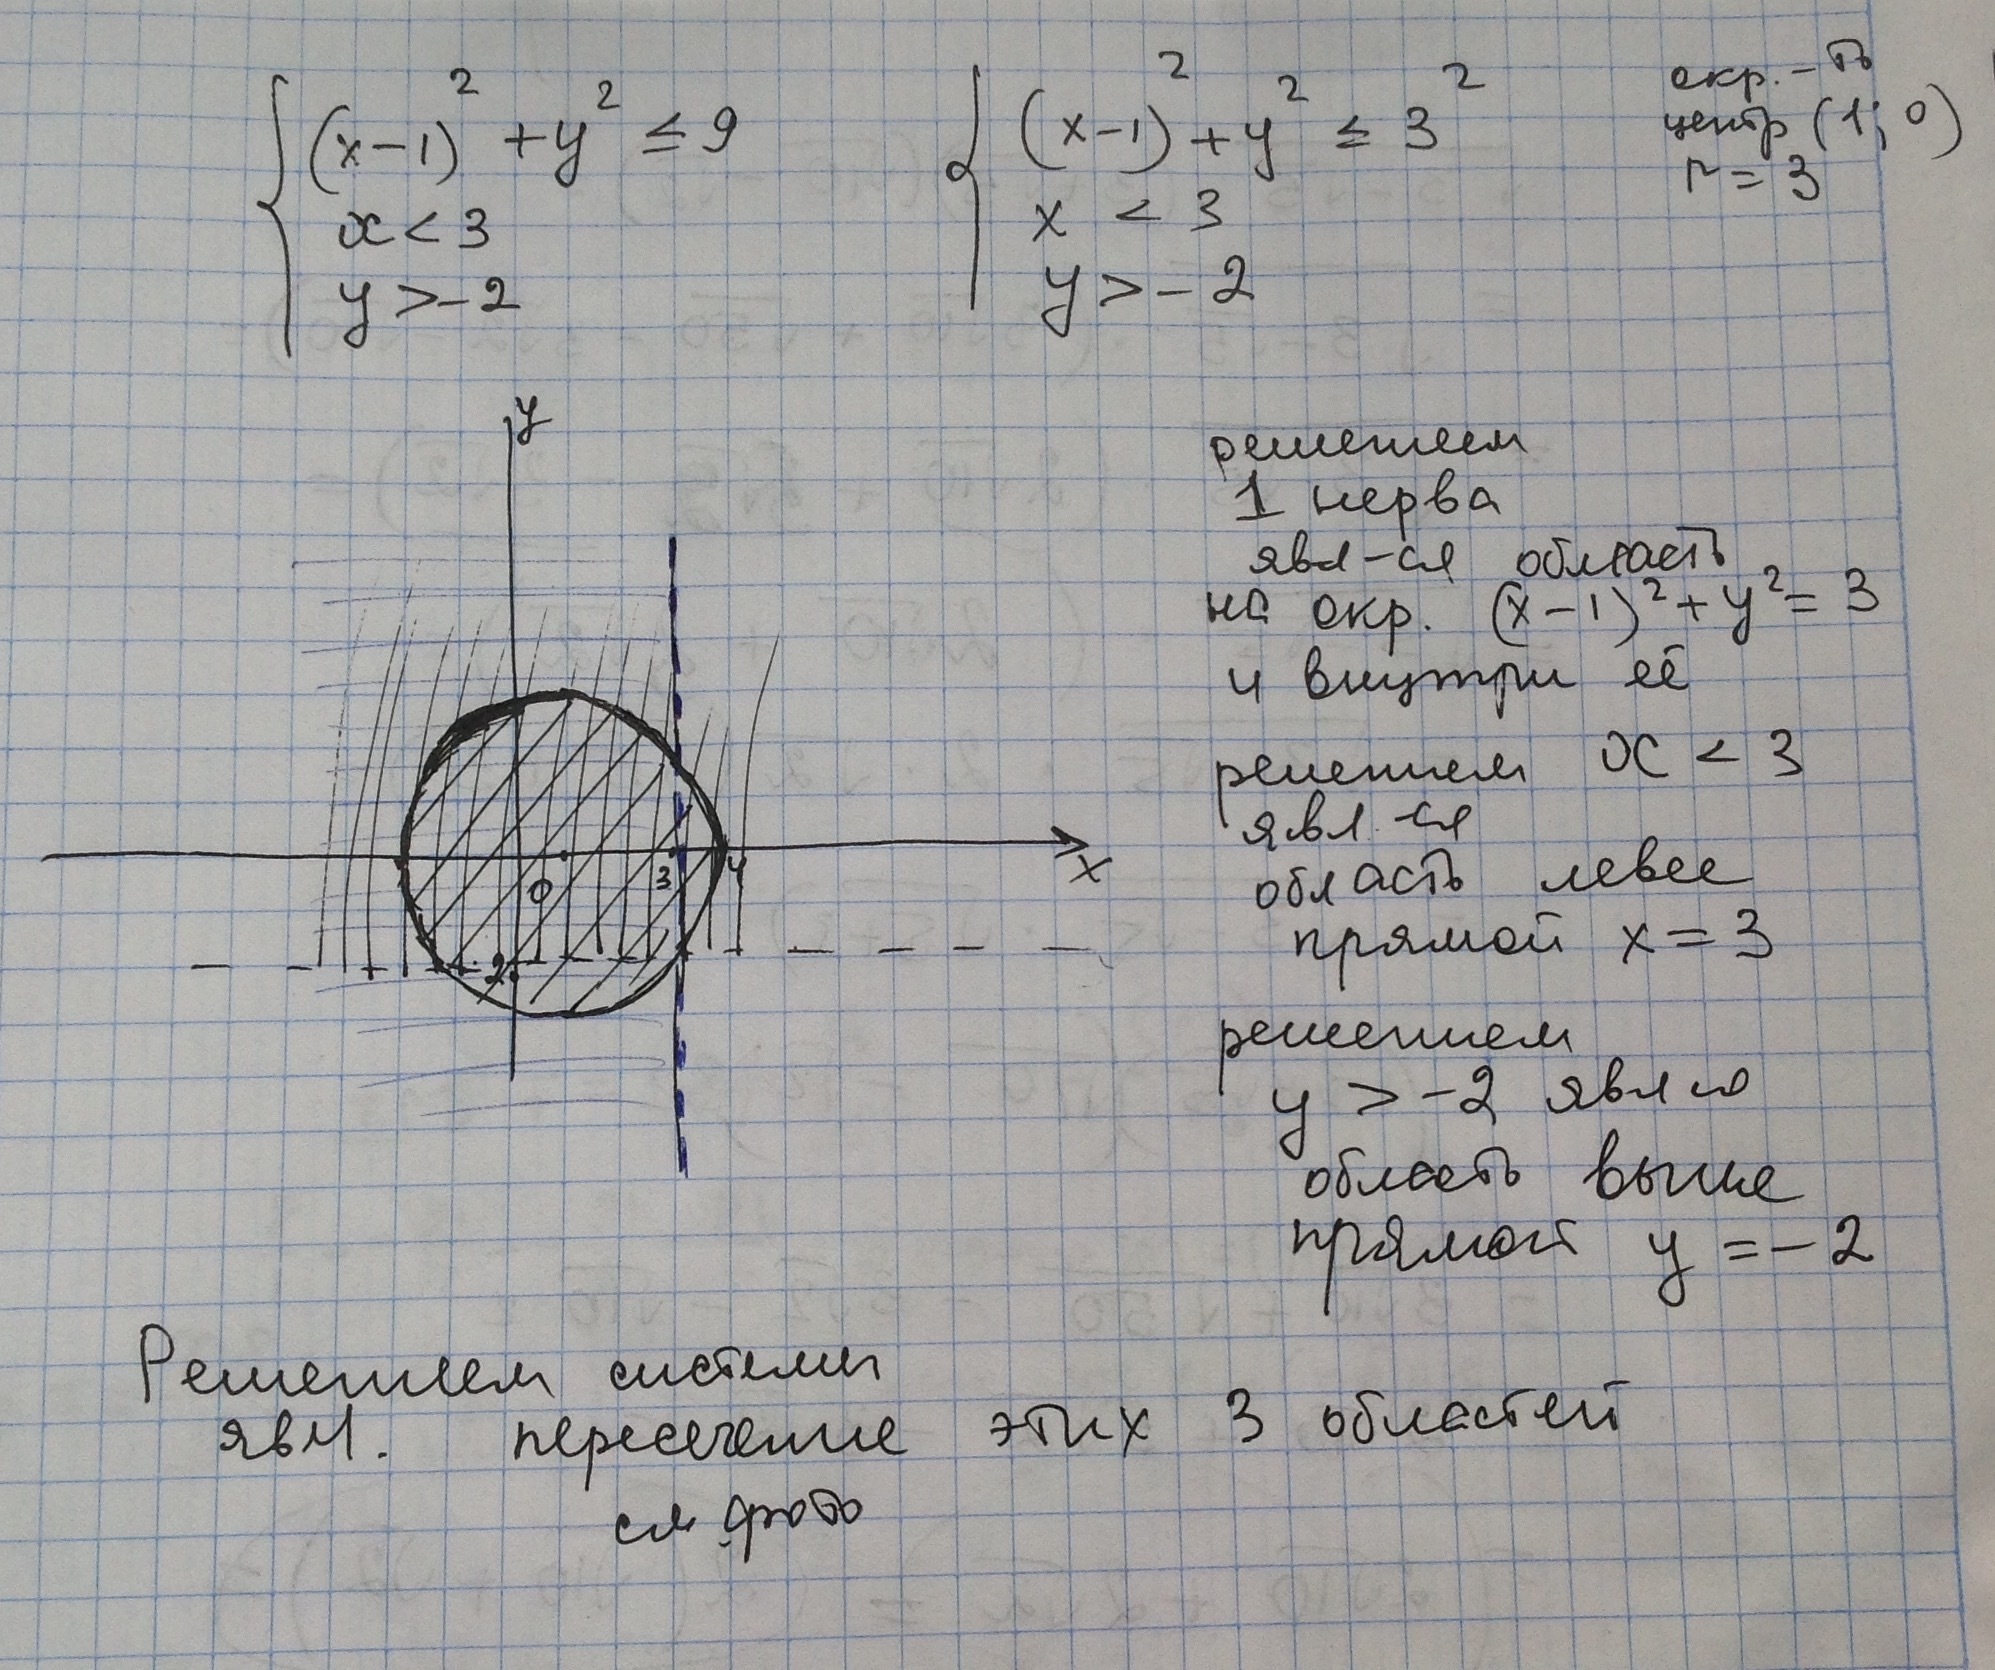 (x-1)² + y² ≤ 9
x < 3
y > -2
(x-1)² + y² ≤ 3²
x < 3
y > -2
окр.-ть
центр (1; 0)
r = 3
y
x
0
3
4
-2
решением
1 нерва
явл-ся область
на окр. (x-1)² + y² = 3
и внутри её
решением x < 3
явл-ся
область левее
прямой x = 3
решением
y > -2 явл
область выше
прямой y = -2
Решением системы
явл. пересечение этих 3 областей
см фото